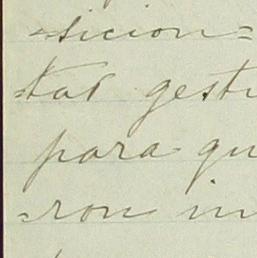 =sicion=
tal gesti
para qu
=ron in